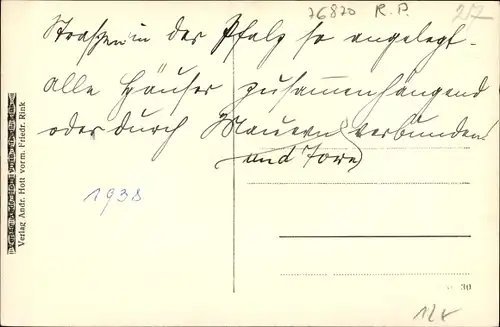 76870 R.P. 217
Straßen in der Pfalz so angelegt.
Alle Häuser zusammenhängend
oder durch Mauern verbunden
und Tore
1938
Verlag Andr. Hott vorm. Friedr. Rink
30